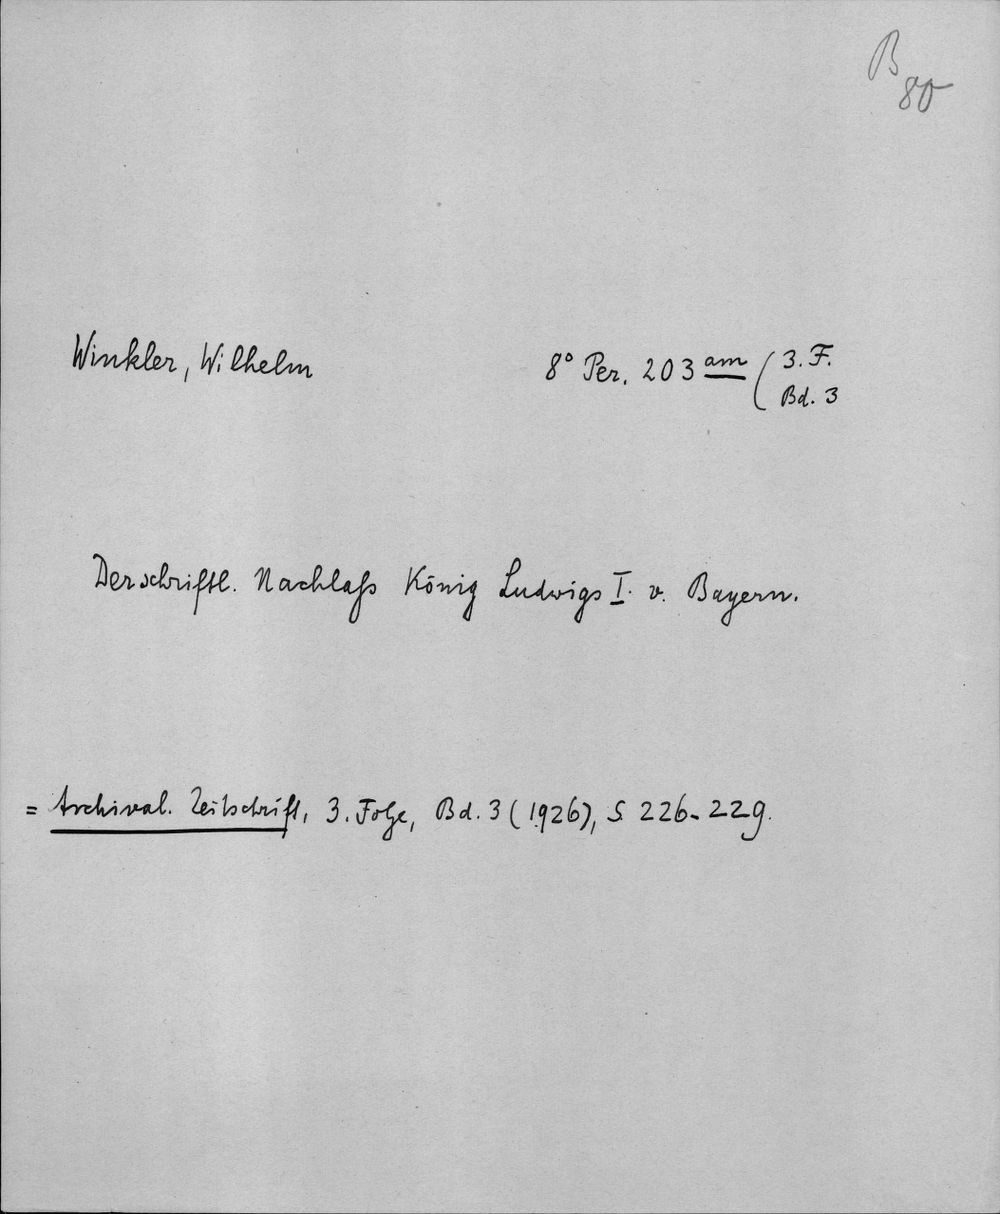 B
80
Winkler, Wilhelm
8° Per. 203 am (3. F.
Bd. 3
Der schriftl. Nachlaß König Ludwigs I. v. Bayern.
= Archival. Zeitschrift, 3. Folge, Bd. 3 (1926), S 226-229.